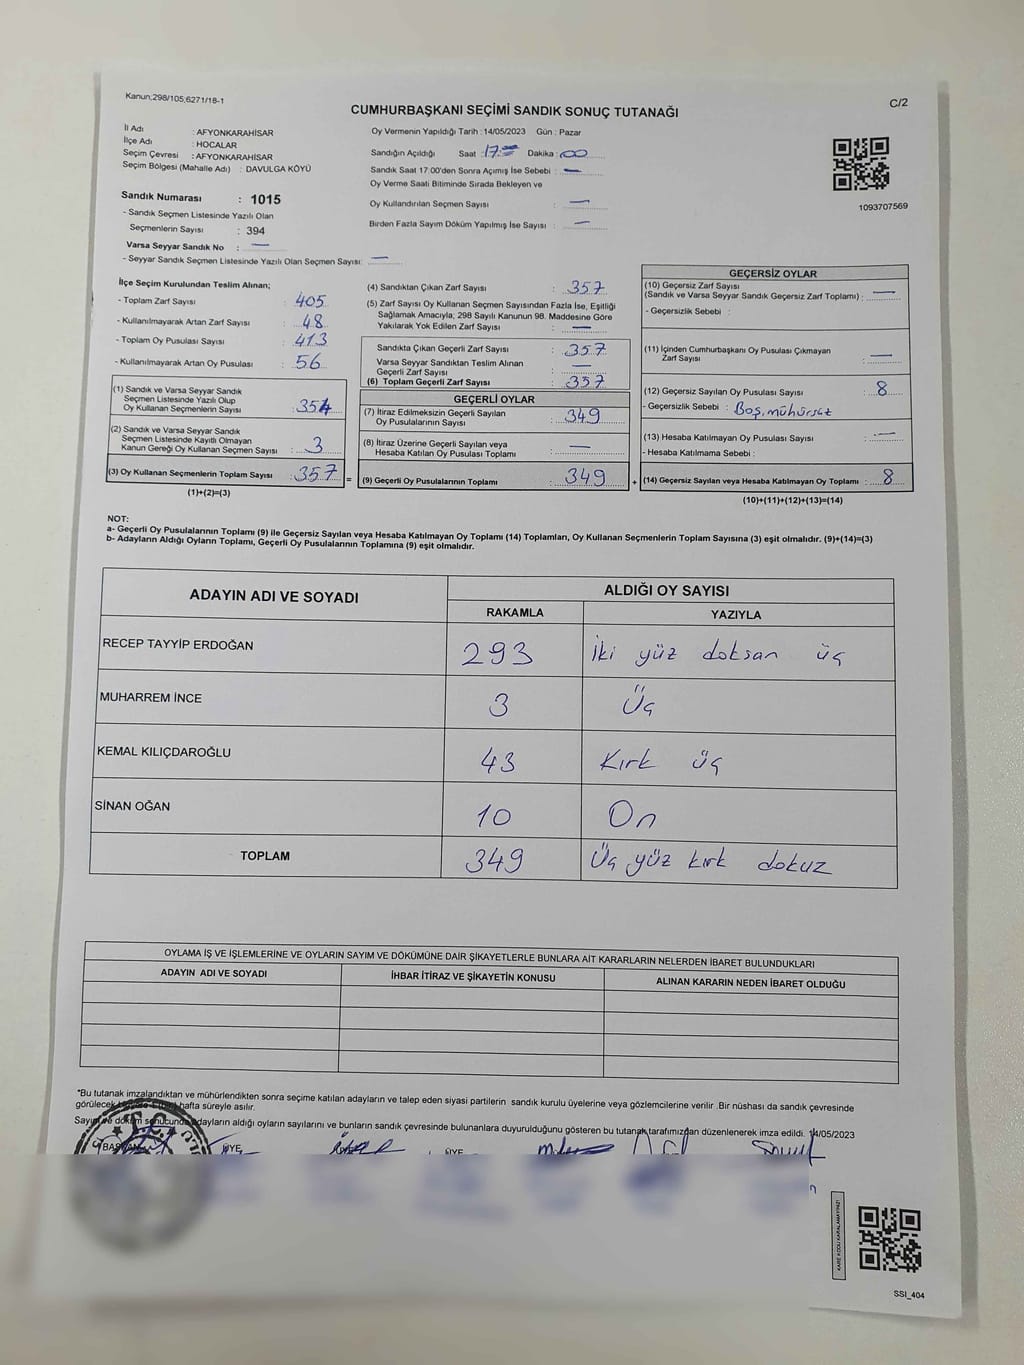 Kanun;298/105;6271/18-1
C/2
CUMHURBAŞKANI SEÇİMİ SANDIK SONUÇ TUTANAĞI
İl Adı : AFYONKARAHİSAR
İlçe Adı : HOCALAR
Seçim Çevresi : AFYONKARAHİSAR
Seçim Bölgesi (Mahalle Adı) : DAVULGA KÖYÜ
Sandık Numarası : 1015
- Sandık Seçmen Listesinde Yazılı Olan
Seçmenlerin Sayısı : 394
Varsa Seyyar Sandık No : —
- Seyyar Sandık Seçmen Listesinde Yazılı Olan Seçmen Sayısı: —
Oy Vermenin Yapıldığı Tarih : 14/05/2023 Gün : Pazar
Sandığın Açıldığı Saat : 17 Dakika : 00
Sandık Saat 17:00'den Sonra Açımış İse Sebebi : —
Oy Verme Saati Bitiminde Sırada Bekleyen ve
Oy Kullandırılan Seçmen Sayısı : —
Birden Fazla Sayım Döküm Yapılmış İse Sayısı : —
1093707569
İlçe Seçim Kurulundan Teslim Alınan;
- Toplam Zarf Sayısı : 405
- Kullanılmayarak Artan Zarf Sayısı : 48
- Toplam Oy Pusulası Sayısı : 413
- Kullanılmayarak Artan Oy Pusulası : 56
(1) Sandık ve Varsa Seyyar Sandık
Seçmen Listesinde Yazılı Olup
Oy Kullanan Seçmenlerin Sayısı : 354
(2) Sandık ve Varsa Seyyar Sandık
Seçmen Listesinde Kayıtlı Olmayan
Kanun Gereği Oy Kullanan Seçmen Sayısı : 3
(3) Oy Kullanan Seçmenlerin Toplam Sayısı : 357 =
(1)+(2)=(3)
(4) Sandıktan Çıkan Zarf Sayısı : 357
(5) Zarf Sayısı Oy Kullanan Seçmen Sayısından Fazla İse, Eşitliği
Sağlamak Amacıyla; 298 Sayılı Kanunun 98. Maddesine Göre
Yakılarak Yok Edilen Zarf Sayısı : —
Sandıkta Çıkan Geçerli Zarf Sayısı : 357
Varsa Seyyar Sandıktan Teslim Alınan
Geçerli Zarf Sayısı : —
(6) Toplam Geçerli Zarf Sayısı : 357
GEÇERLİ OYLAR
(7) İtiraz Edilmeksizin Geçerli Sayılan
Oy Pusulalarının Sayısı : 349
(8) İtiraz Üzerine Geçerli Sayılan veya
Hesaba Katılan Oy Pusulası Toplamı : —
(9) Geçerli Oy Pusulalarının Toplamı : 349 +
GEÇERSİZ OYLAR
(10) Geçersiz Zarf Sayısı
(Sandık ve Varsa Seyyar Sandık Geçersiz Zarf Toplamı) : —
- Geçersizlik Sebebi :
(11) İçinden Cumhurbaşkanı Oy Pusulası Çıkmayan
Zarf Sayısı : —
(12) Geçersiz Sayılan Oy Pusulası Sayısı : 8
- Geçersizlik Sebebi : Boş, mühürsüz
(13) Hesaba Katılmayan Oy Pusulası Sayısı : —
- Hesaba Katılmama Sebebi :
(14) Geçersiz Sayılan veya Hesaba Katılmayan Oy Toplamı : 8
(10)+(11)+(12)+(13)=(14)
NOT:
a- Geçerli Oy Pusulalarının Toplamı (9) ile Geçersiz Sayılan veya Hesaba Katılmayan Oy Toplamı (14) Toplamları, Oy Kullanan Seçmenlerin Toplam Sayısına (3) eşit olmalıdır. (9)+(14)=(3)
b- Adayların Aldığı Oyların Toplamı, Geçerli Oy Pusulalarının Toplamına (9) eşit olmalıdır.
ADAYIN ADI VE SOYADI ALDIĞI OY SAYISI
RAKAMLA YAZIYLA
RECEP TAYYİP ERDOĞAN 293 İki yüz doksan üç
MUHARREM İNCE 3 Üç
KEMAL KILIÇDAROĞLU 43 Kırk üç
SİNAN OĞAN 10 On
TOPLAM 349 Üç yüz kırk dokuz
OYLAMA İŞ VE İŞLEMLERİNE VE OYLARIN SAYIM VE DÖKÜMÜNE DAİR ŞİKAYETLERLE BUNLARA AİT KARARLARIN NELERDEN İBARET BULUNDUKLARI
ADAYIN ADI VE SOYADI İHBAR İTİRAZ VE ŞİKAYETİN KONUSU ALINAN KARARIN NEDEN İBARET OLDUĞU
"Bu tutanak imzalandıktan ve mühürlendikten sonra seçime katılan adayların ve talep eden siyasi partilerin sandık kurulu üyelerine veya gözlemcilerine verilir .Bir nüshası da sandık çevresinde
görülecek hafta süreyle asılır.
Sayım ve döküm sonucunda adayların aldığı oyların sayılarını ve bunların sandık çevresinde bulunanlara duyurulduğunu gösteren bu tutanak tarafımızdan düzenlenerek imza edildi. 14/05/2023
BAŞKAN ÜYE ÜYE
T.C.
KARE KODU KARALAMAYINIZ!
SSI_404